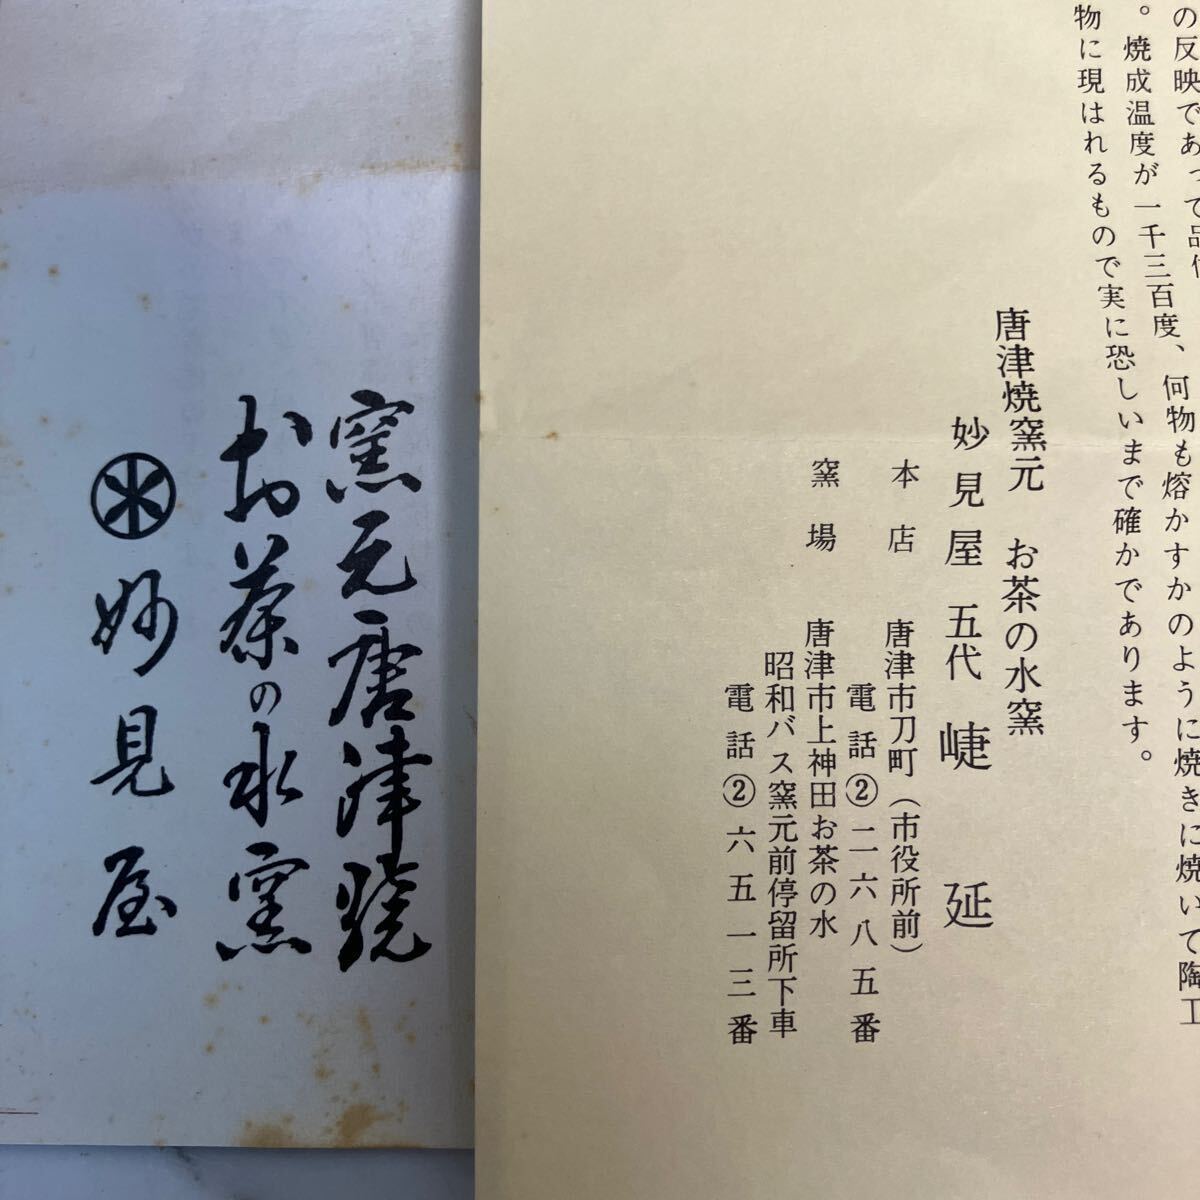 の反映であって品
。焼成温度が一千三百度、何物も熔かすかのように焼きに焼いて陶工
物に現はれるもので実に恐しいまで確かであります。
唐津焼窯元　お茶の水窯
妙見屋 五代 崨 延
本店　唐津市刀町（市役所前）
電話②二六八五番
窯場　唐津市上神田お茶の水
昭和バス窯元前停留所下車
電話②六五一三番
窯元唐津焼
お茶の水窯
妙見屋